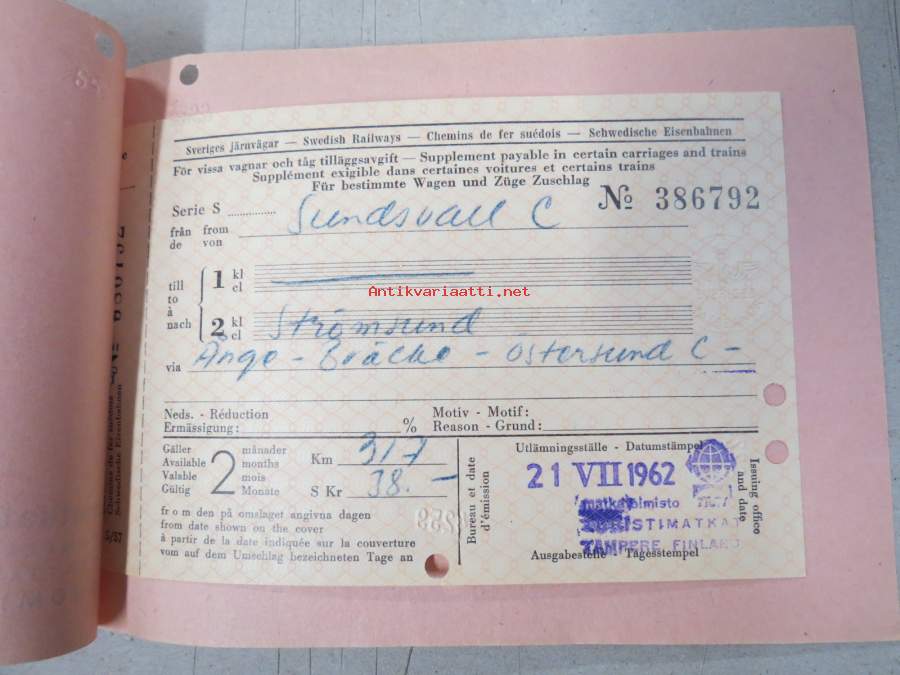 Sveriges järnvägar — Swedish Railways — Chemins de fer suédois — Schwedische Eisenbahnen
För vissa vagnar och tåg tilläggsavgift — Supplement payable in certain carriages and trains
Supplément exigible dans certaines voitures et certains trains
Für bestimmte Wagen und Züge Zuschlag
Serie S ............... № 386792
från from Sundsvall C
de von
till
to
à
nach
1 kl
cl
Antikvariaatti.net
2 kl Strömsund
cl
via Ånge - Bräcke - Östersund C -
Neds. - Réduction
Ermässigung: %
Motiv - Motif:
Reason - Grund:
Gäller
Available
Valable
Gültig
2
månader
months
mois
Monate
Km 317
S Kr 38. -
from den på omslaget angivna dagen
from date shown on the cover
à partir de la date indiquée sur la couverture
vom auf dem Umschlag bezeichneten Tage an
Bureau et date
d'émission
Utlämningsställe - Datumstämpel
21 VII 1962
matkatoimisto
TURISTIMATKAT
TAMPERE FINLAND
Ausgabestelle - Tagesstempel
Issuing office
and date
Chemins de fer suédois
Schwedische Eisenbahnen
№ 386792
5/57